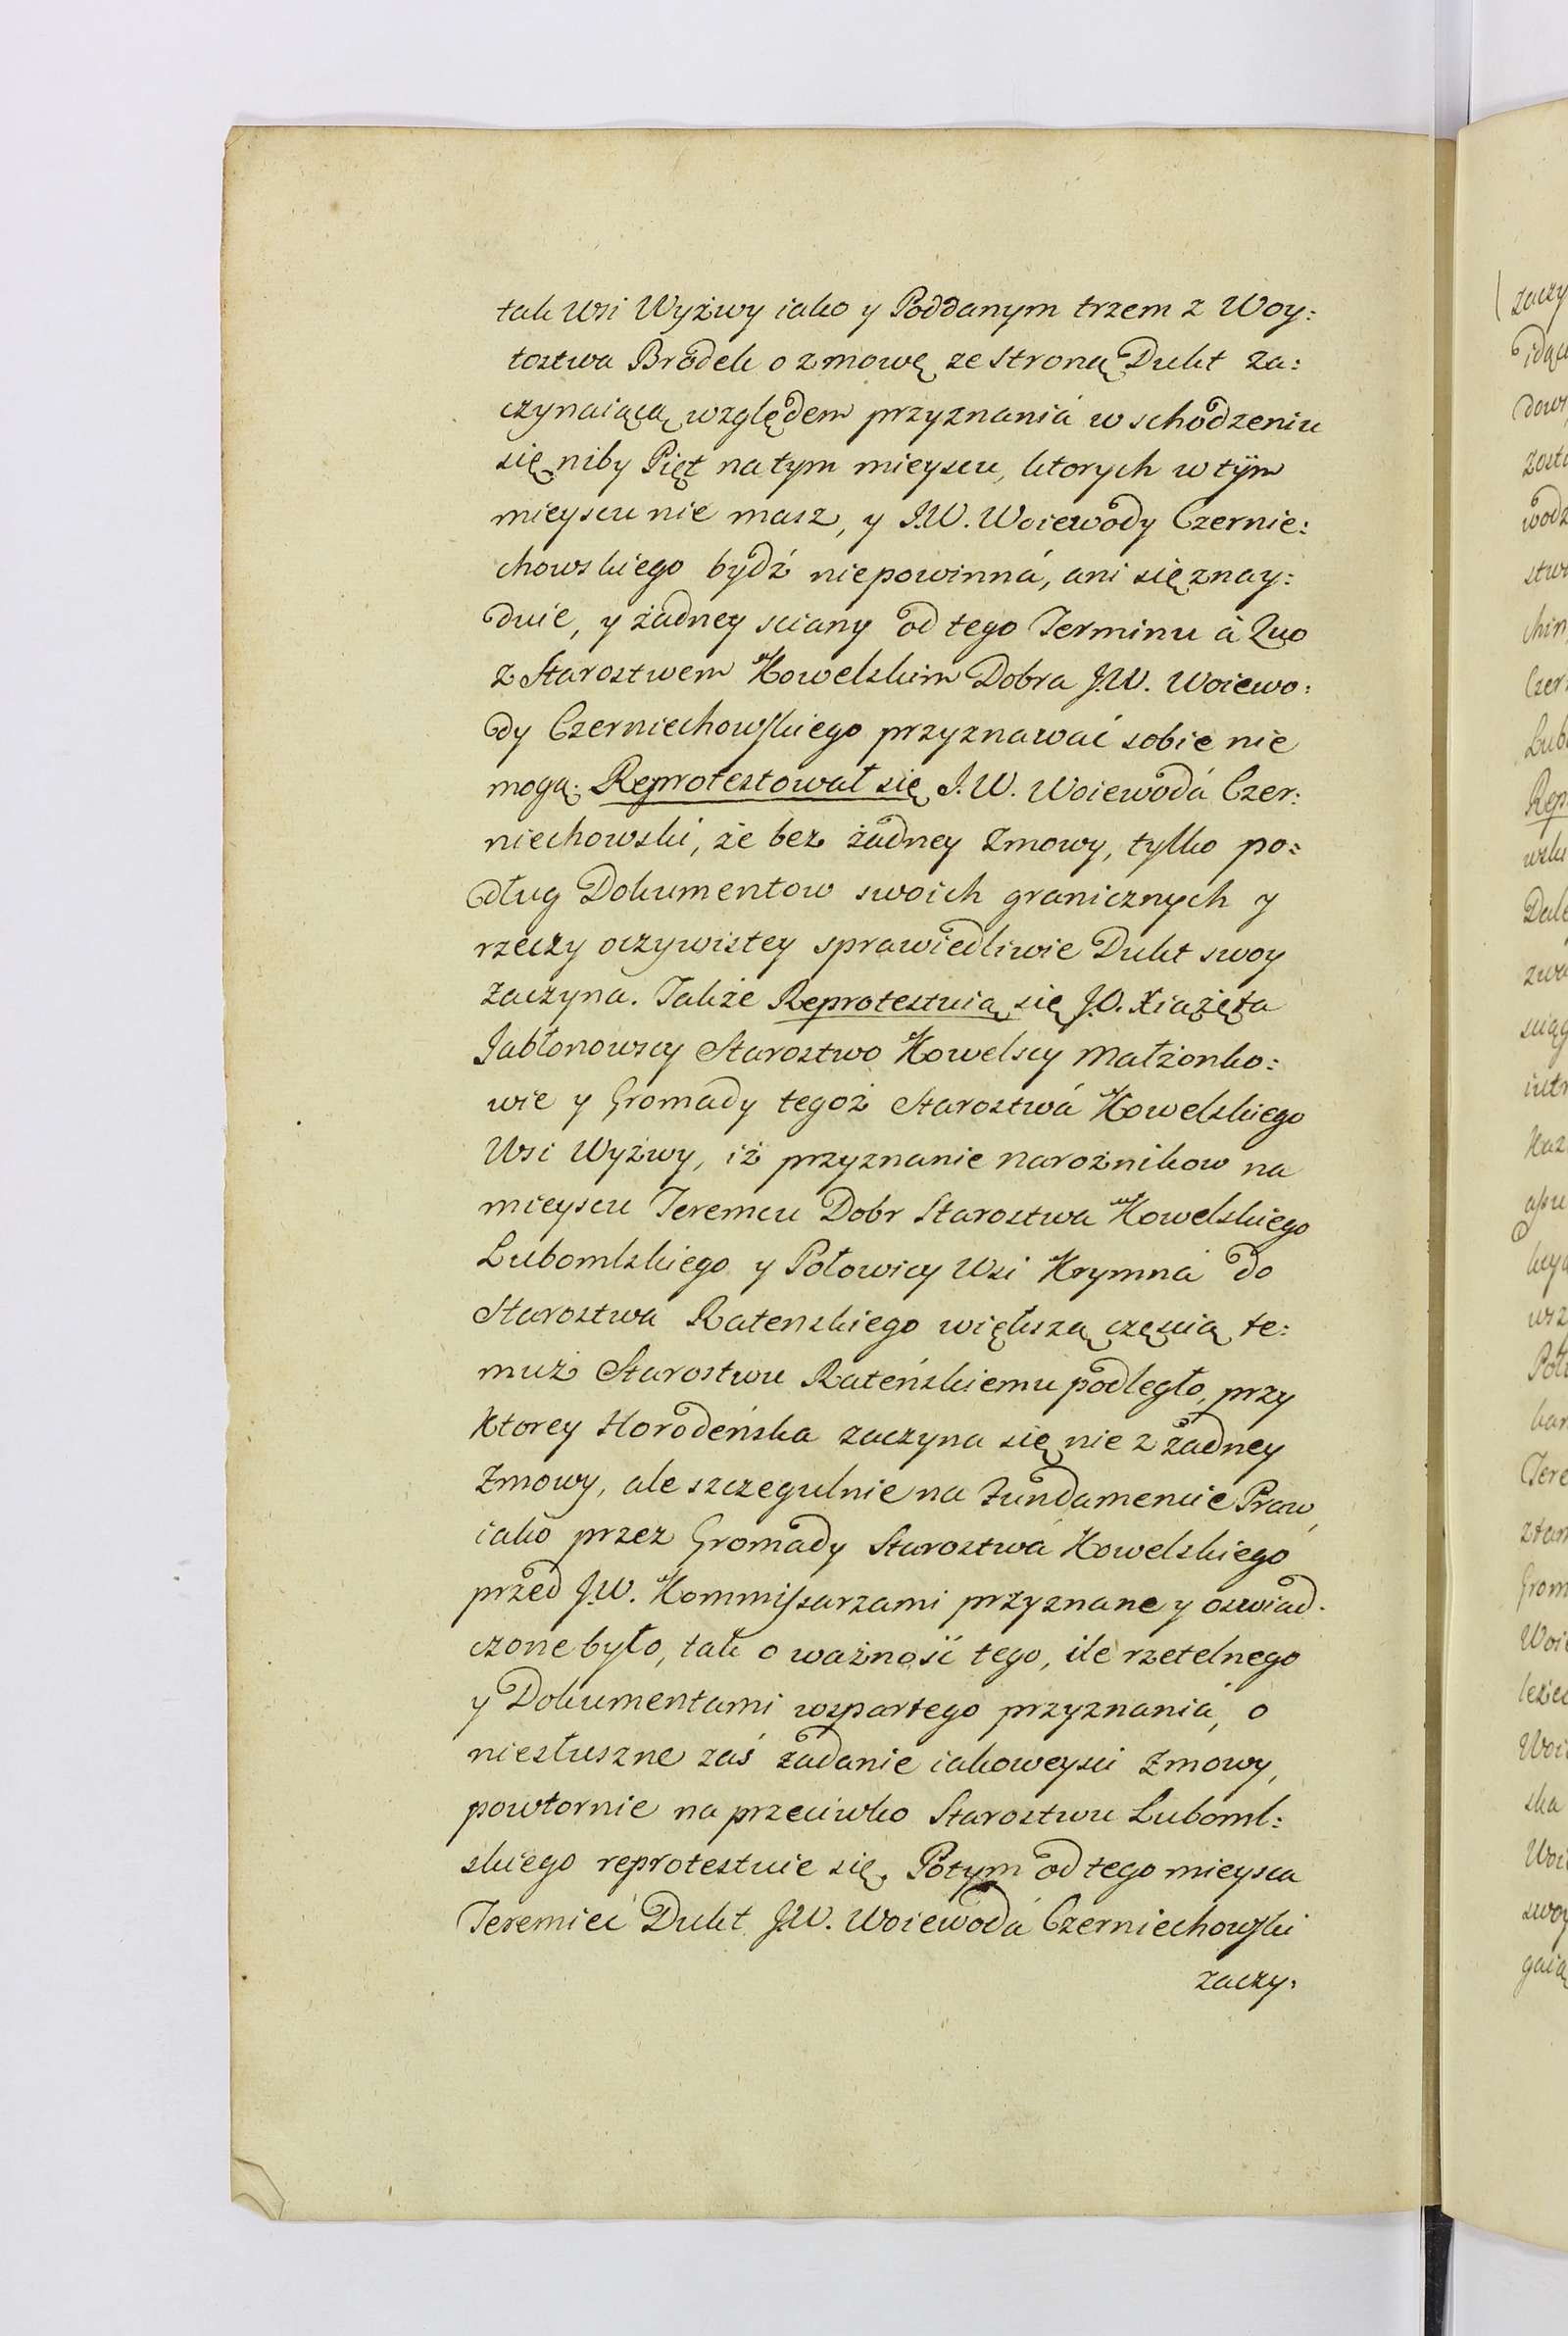 tak Wsi Wyżwy iako y Poddanym trzem z Woy:
tostwa Brodek o zmowę ze Stroną Dukt za:
czynaiącą względem przyznaniá w schodzeniu
się niby Pięt na tym mieyscu, ktorych w tym
mieyscu nie masz, y J.W. Woiewody Czernie:
chowskiego bydź niepowinná, ani się znay:
duie, y żadney sciany od tego Terminu à Quo
z Starostwem Kowelskim Dobra J.W. Woiewo:
dy Czerniechowskiego przyznawać sobie nie
mogą. Reprotestował się J.W. Woiewodá Czer:
niechowski, że bez żadney Zmowy, tylko po:
dług Dokumentow swoich granicznych y
rzeczy oczywistey sprawiedliwie Dukt swoy
zaczyna. Także Reprotestuią się J.O. Xiążęta
Jabłonowscy Starostwo Kowelscy Małżonko:
wie y Gromady tegoż Starostwá Kowelskiego
Wsi Wyżwy, iż przyznanie narożnikow na
mieyscu Teremcu Dobr Starostwa Kowelskiego
Lubomlskiego y Połowicy Wsi Krymná do
Starostwa Ratenskiego większą częscią te:
muż Starostwu Rateńskiemu podległo, przy
Ktorey Horodeńska zaczyna się nie z żadney
Zmowy, ale szczegulnie na Fundamencie Praw,
iako przez Gromady Starostwá Kowelskiego
przed J.W. Kommissarzami przyznane y oswiad:
czone było, tak o ważność tego, ile rzetelnego
y Dokumentami wspartego przyznaniá, o
niesłuszne zaś żadanie iakoweysci Zmowy,
powtornie na przeciwko Starostwu Luboml:
skiego reprotestuie się. Potym od tego mieysca
Teremieć Dukt J.W. Woiewodá Czerniechowski
zaczy: